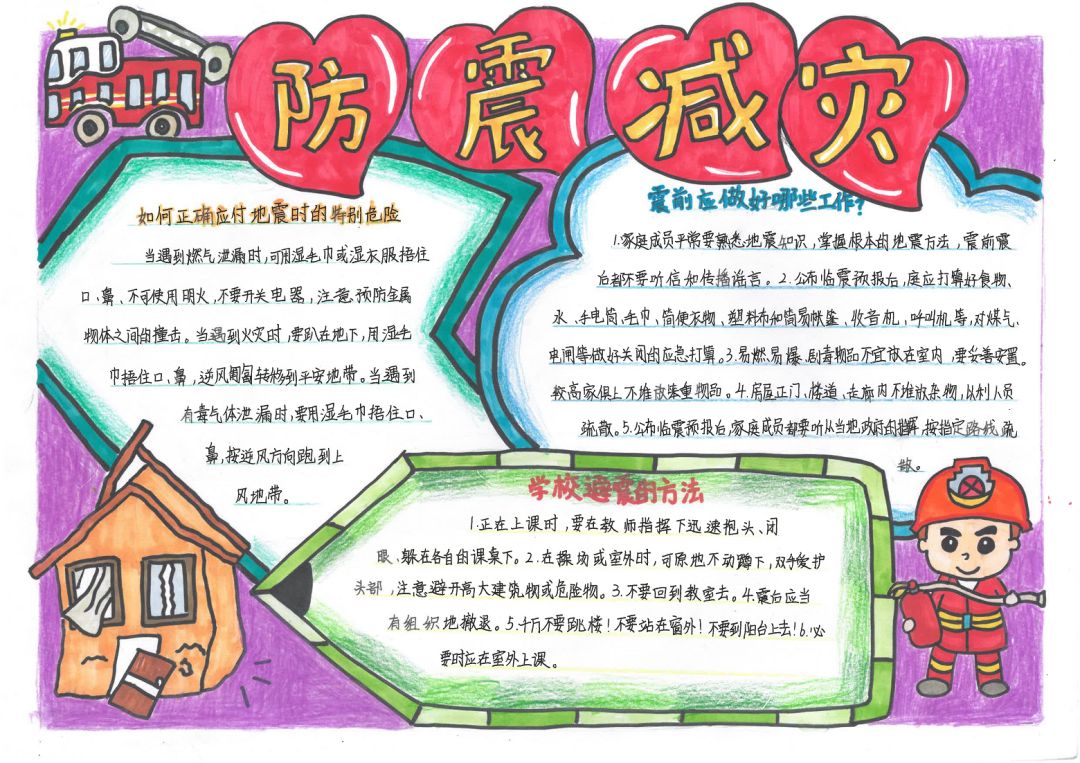 防震减灾
如何正确应付地震时的特别危险
当遇到燃气泄漏时,可用湿毛巾或湿衣服捂住
口、鼻、不可使用明火,不要开关电器,注意预防金属
物体之间的撞击。当遇到火灾时,要趴在地下,用湿毛
巾捂住口、鼻,逆风匍匐转移到平安地带。当遇到
有毒气体泄漏时,要用湿毛巾捂住口、
鼻,按逆风方向跑到上
风地带。
震前应做好哪些工作?
1.家庭成员平常要熟悉地震知识,掌握根本的地震方法,震前震
后都不要听信和传播谣言。2.公布临震预报后,庭应打算好食物、
水、手电筒、毛巾、简便衣物、塑料布和简易帐篷、收音机、呼叫机等,对煤气、
电闸等做好关闭的应急打算。3.易燃、易爆、剧毒物品不宜放在室内,要妥善安置。
较高家俱上不堆放笨重物品。4.房屋正门、楼道、走廊内不堆放杂物,以利人员
疏散。5.公布临震预报后,家庭成员都要听从当地政府的指挥,按指定路线疏
散。
学校避震的方法
1.正在上课时,要在教师指挥下迅速抱头、闭
眼、躲在各自的课桌下。2.在操场或室外时,可原地不动蹲下,双手爱护
头部,注意避开高大建筑物或危险物。3.不要回到教室去。4.震后应当
有组织地撤退。5.千万不要跳楼!不要站在窗外!不要到阳台上去!6.必
要时应在室外上课。